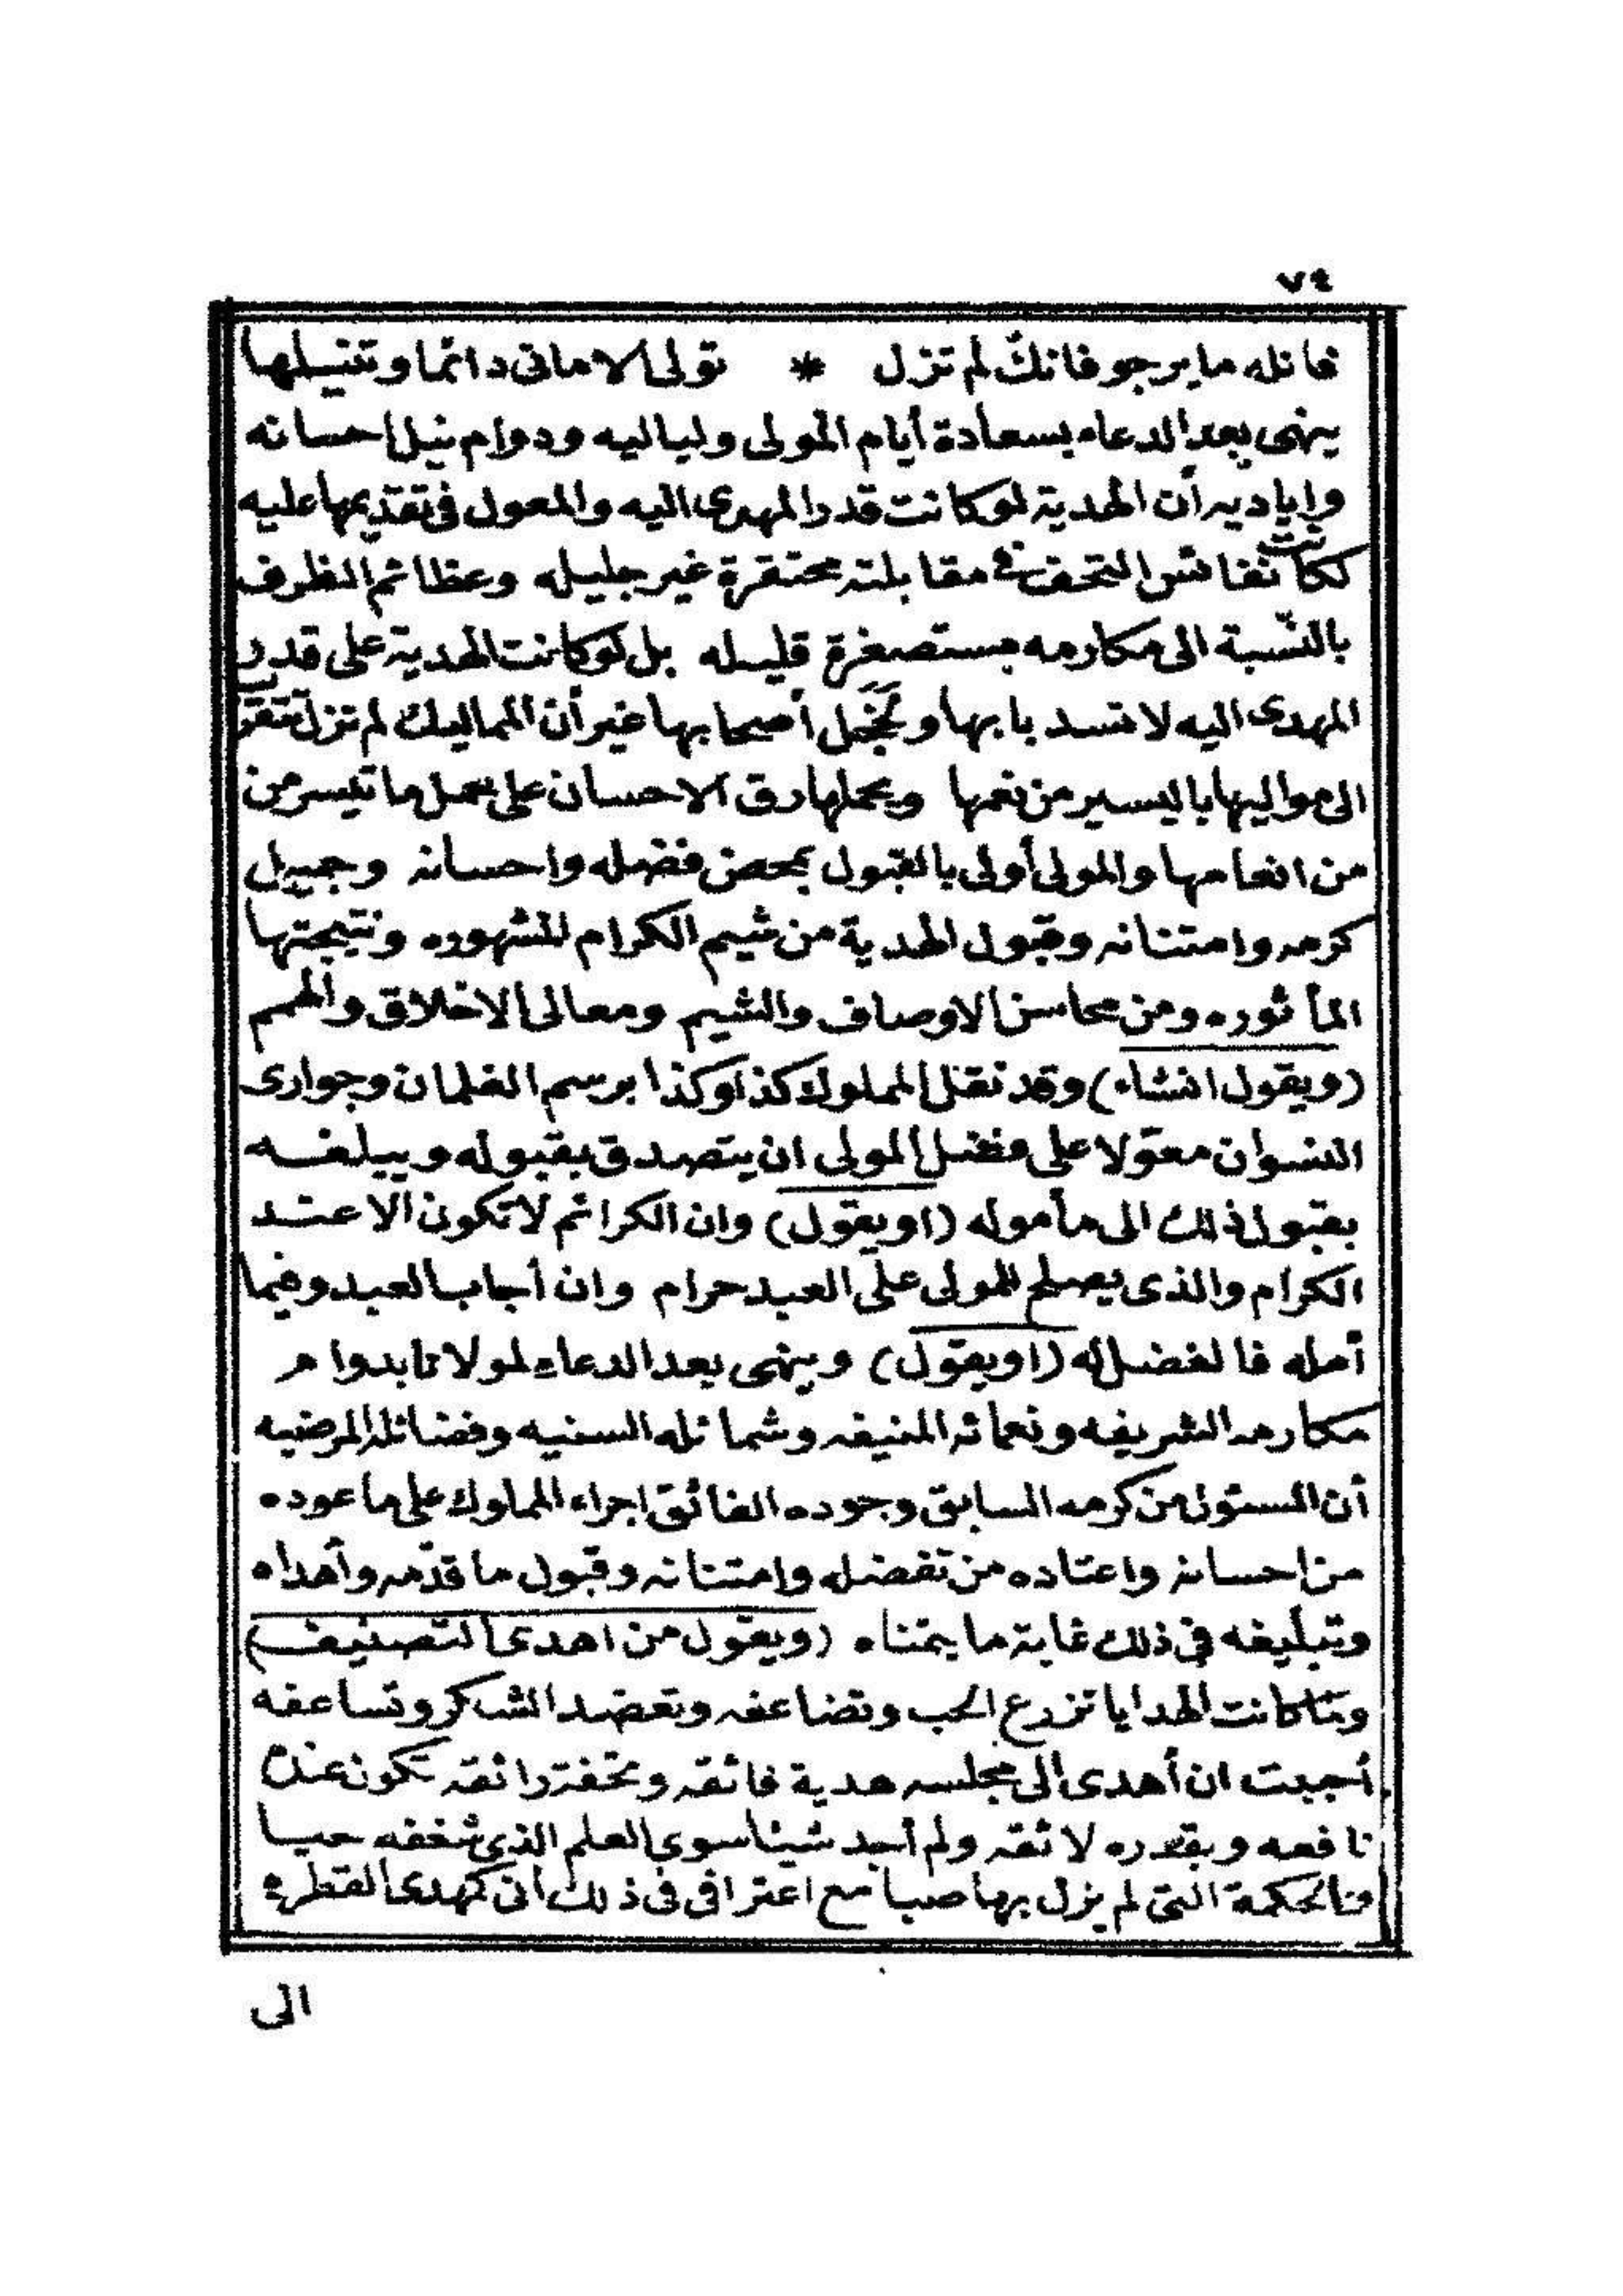 ٧٤
فانله ما يرجو فانك لم تزل * تولى الامانى دائما وتنيلها
ينهى بعد الدعاء بسعادة أيام المولى ولياليه ودوام نيل احسانه
واياديه أن الهدية لو كانت قدر المهدى اليه والمعول فى تقديمها عليه
لكانت نفائس التحف فى مقابلته محتقرة غير جليله وعظائم الظرف
بالنّسبة الى مكارمه مستصغرة قليله بل لو كانت الهدية على قدر
المهدى اليه لانسد بابها وخَجَل أصحابها غير أن المماليك لم تزل تتقرب
الى مواليها باليسير من نعمها ويحملها رق الاحسان على حمل ما تيسر من
من انعامها والمولى أولى بالقبول بمحض فضله واحسانه وجميل
كرمه وامتنانه وقبول الهدية من شيم الكرام المشهوره ونتيجتها
المأثوره ومن محاسن الاوصاف والشيم ومعالى الاخلاق والهمم
(ويقول انشاء) وقد نقل المملوك كذا وكذا برسم الغلمان وجوارى
النسوان معوّلا على فضل المولى ان يتصدق بقبوله ويبلغه
بقبول ذلك الى مأموله (او يقول) وان الكرائم لا تكون الا عند
الكرام والذى يصلح للمولى على العبد حرام وان أجاب العبد وفيما
أمله فالفضل له (او يقول) وينهى بعد الدعاء لمولانا بدوام
مكارمه الشريفه ونعمائه المنيفه وشمائله السنيه وفضائله المرضيه
أن المسئول من كرمه السابق وجوده الفائق اجراء المملوك على ما عوده
من احسانه واعتاده من تفضله وامتنانه وقبول ما قدّمه وأهداه
وتبليغه فى ذلك غاية ما يتمناه (ويقول من اهدى التصنيف)
ولما كانت الهدايا تزرع الحب وتضاعفه وتعضد الشكر وتساعفه
أحببت ان أهدى الى مجلسه هدية فائقه وتحفة رائقه تكون عنده
نافعه وبقدره لائقه ولم أجد شيئا سوى العلم الذى شغفه حبا
والحكمة التى لم يزل بها صبا مع اعترافى فى ذلك انى كمهدى القطرة
الى